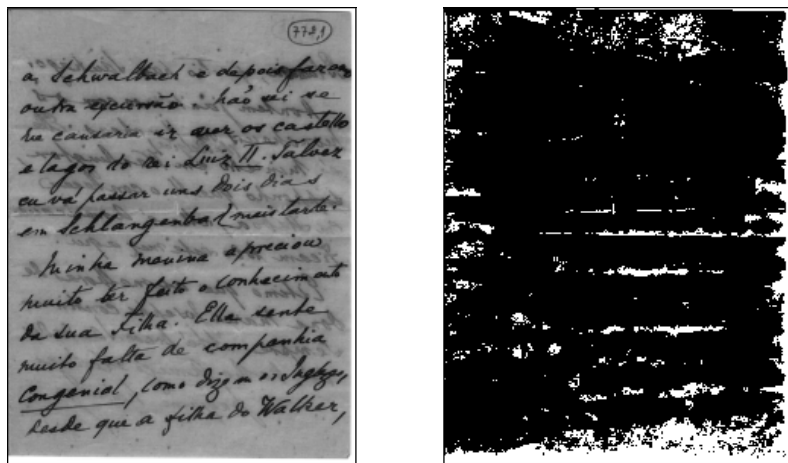 778,1
a, Schwalbach e depois farem
outra excursão: não sei se
lhe causaria ir ver os castello
e lagos do rei Luiz II. Talvez
eu vá passar uns dois dias
em Schlangenbad mais tarde.
Minha menina apreciou
muito ter feito o conhecimento
da sua filha. Ella sente
muito falta de companhia
congenial, como dizem os Inglezes,
desde que a filha do Walker,